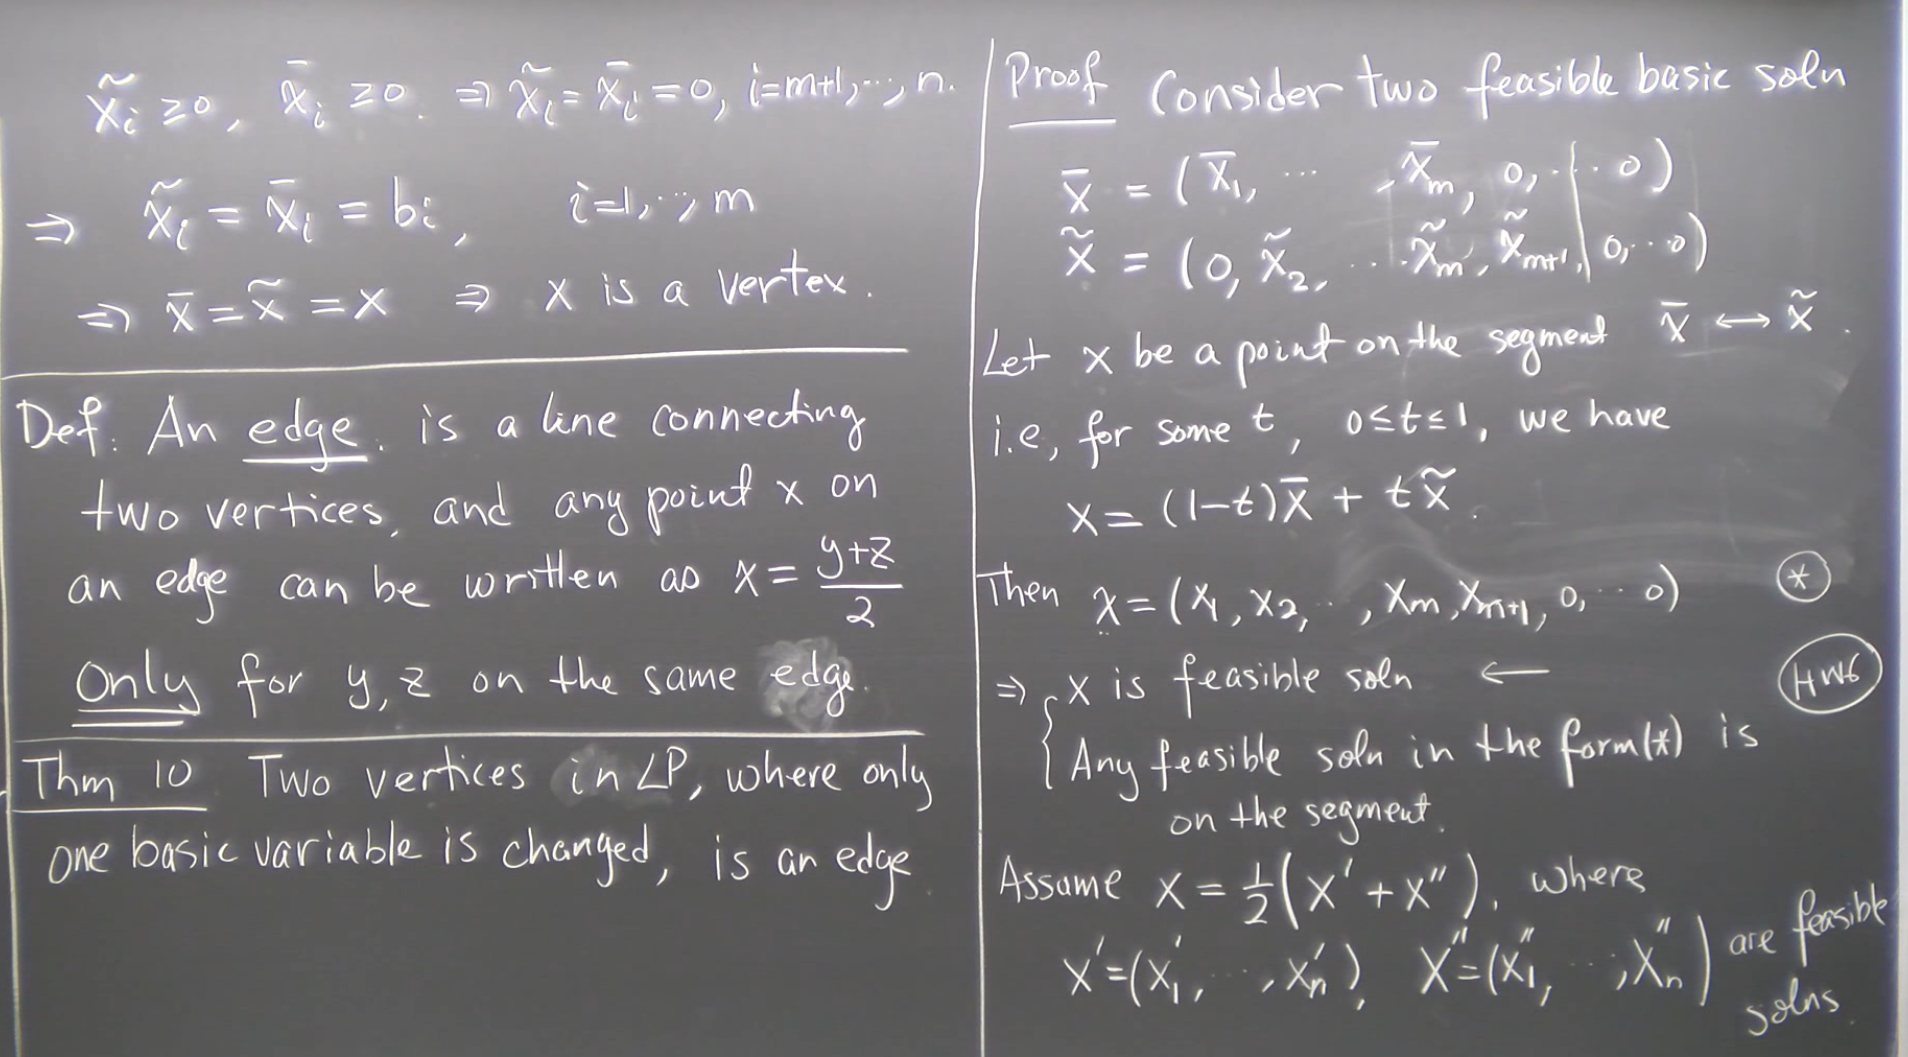 x̃ᵢ ≥0, x̄ᵢ ≥0. ⇒ x̃ᵢ = x̄ᵢ = 0, i=m+1, ..., n.
⇒ x̃ᵢ = x̄ᵢ = bᵢ, i=1, ..., m
⇒ x̄ = x̃ = x ⇒ x is a vertex.
Def. An edge. is a line connecting
two vertices, and any point x on
an edge can be written as x = (y+z)/2
Only for y, z on the same edge.
Thm 10 Two vertices in LP, where only
one basic variable is changed, is an edge.
Proof Consider two feasible basic soln
x̄ = (x̄₁, ... , x̄ₘ, 0, ... 0)
x̃ = (0, x̃₂, ... x̃ₘ, x̃ₘ₊₁, 0, ... 0)
Let x be a point on the segment x̄ ↔ x̃.
i.e, for some t, 0≤t≤1, we have
x = (1-t)x̄ + t x̃.
Then x = (x₁, x₂, ... , xₘ, xₘ₊₁, 0, ... 0) (*)
⇒ { x is feasible soln ← HW6
Any feasible soln in the form (*) is
on the segment.
Assume x = 1/2 (x' + x''), where
x' = (x₁', ... , xₙ'), x'' = (x₁'', ... , xₙ'') are feasible
solns.